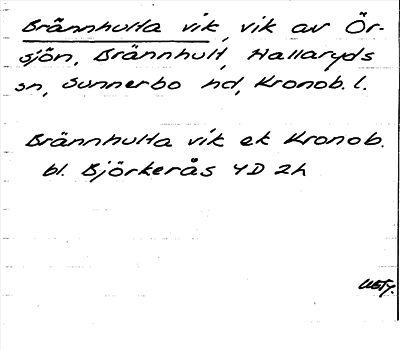 Brännhulta vik, vik av Ör-
sjön, Brännhult, Hallaryds
sn, Sunnerbo hd, Kronob. l.
Brännhulta vik ek Kronob.
bl. Björkerås 4D 2h